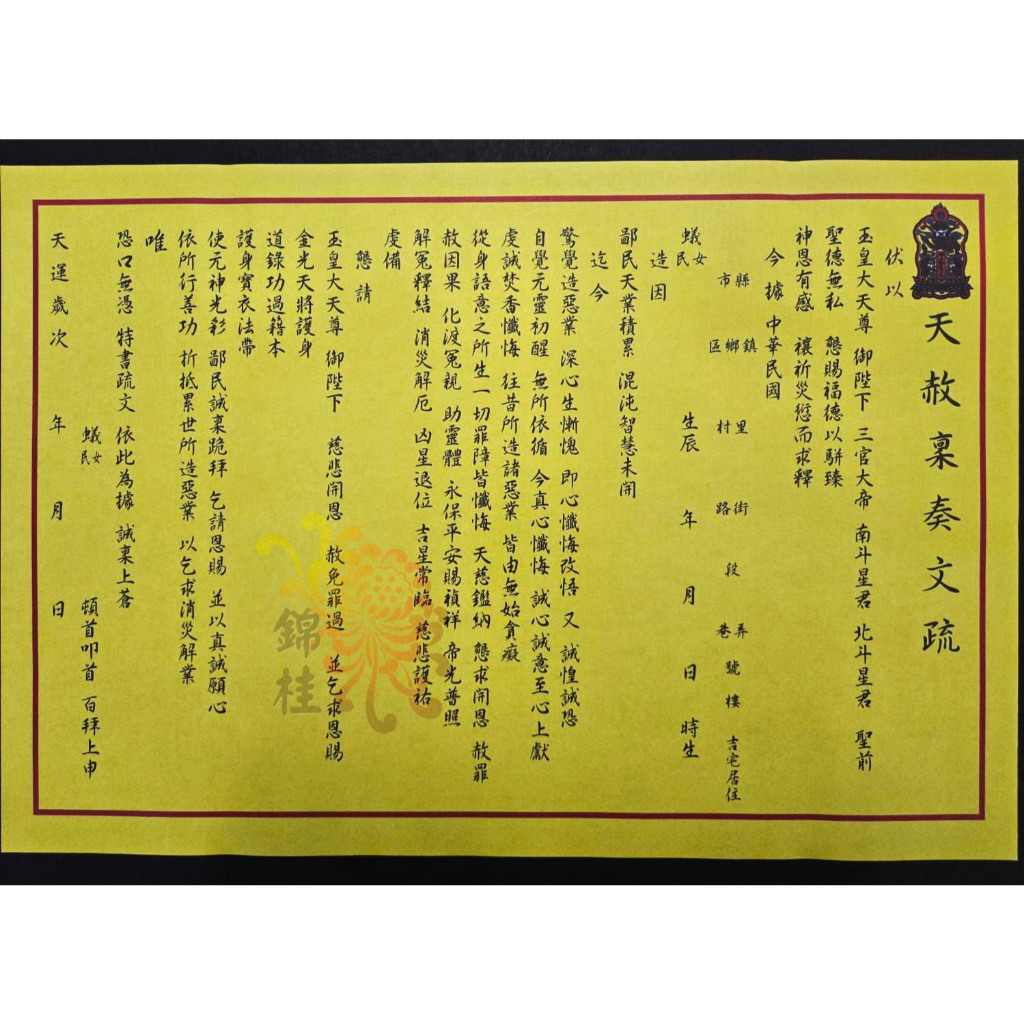 天赦稟奏文疏
伏以
玉皇大天尊 御陛下 三官大帝 南斗星君 北斗星君 聖前
聖德無私 懇賜福德以駢臻
神恩有感 禳祈災愆而求釋
今據 中華民國
縣市 鎮鄉區 里村 街路 段 弄巷 號 樓 吉宅居住
蟻民女 生辰 年 月 日 時生
造因
鄙民天業積累 混沌智慧未開
迄今
驚覺造惡業 深心生慚愧 即心懺悔改悟 又 誠惶誠恐
自覺元靈初醒 無所依循 今真心懺悔 誠心誠意至心上獻
虔誠焚香懺悔 往昔所造諸惡業 皆由無始貪癡
從身語意之所生 一切罪障皆懺悔 天慈鑑納 懇求開恩 赦罪
赦因果 化渡冤親 助靈體 永保平安賜禎祥 帝光普照
解冤釋結 消災解厄 凶星退位 吉星常臨 慈悲護祐
虔備
懇請
玉皇大天尊 御陛下 慈悲開恩 赦免罪過 並乞求恩賜
金光天將護身
道錄功過籍本
護身寶衣法帶
使元神光彩 鄙民誠稟跪拜 乞請恩賜 並以真誠願心
依所行善功 折抵累世所造惡業 以乞求消災解業
唯
恐口無憑 特書疏文 依此為據 誠稟上蒼
蟻民女 頓首叩首 百拜上申
天運歲次 年 月 日
錦桂